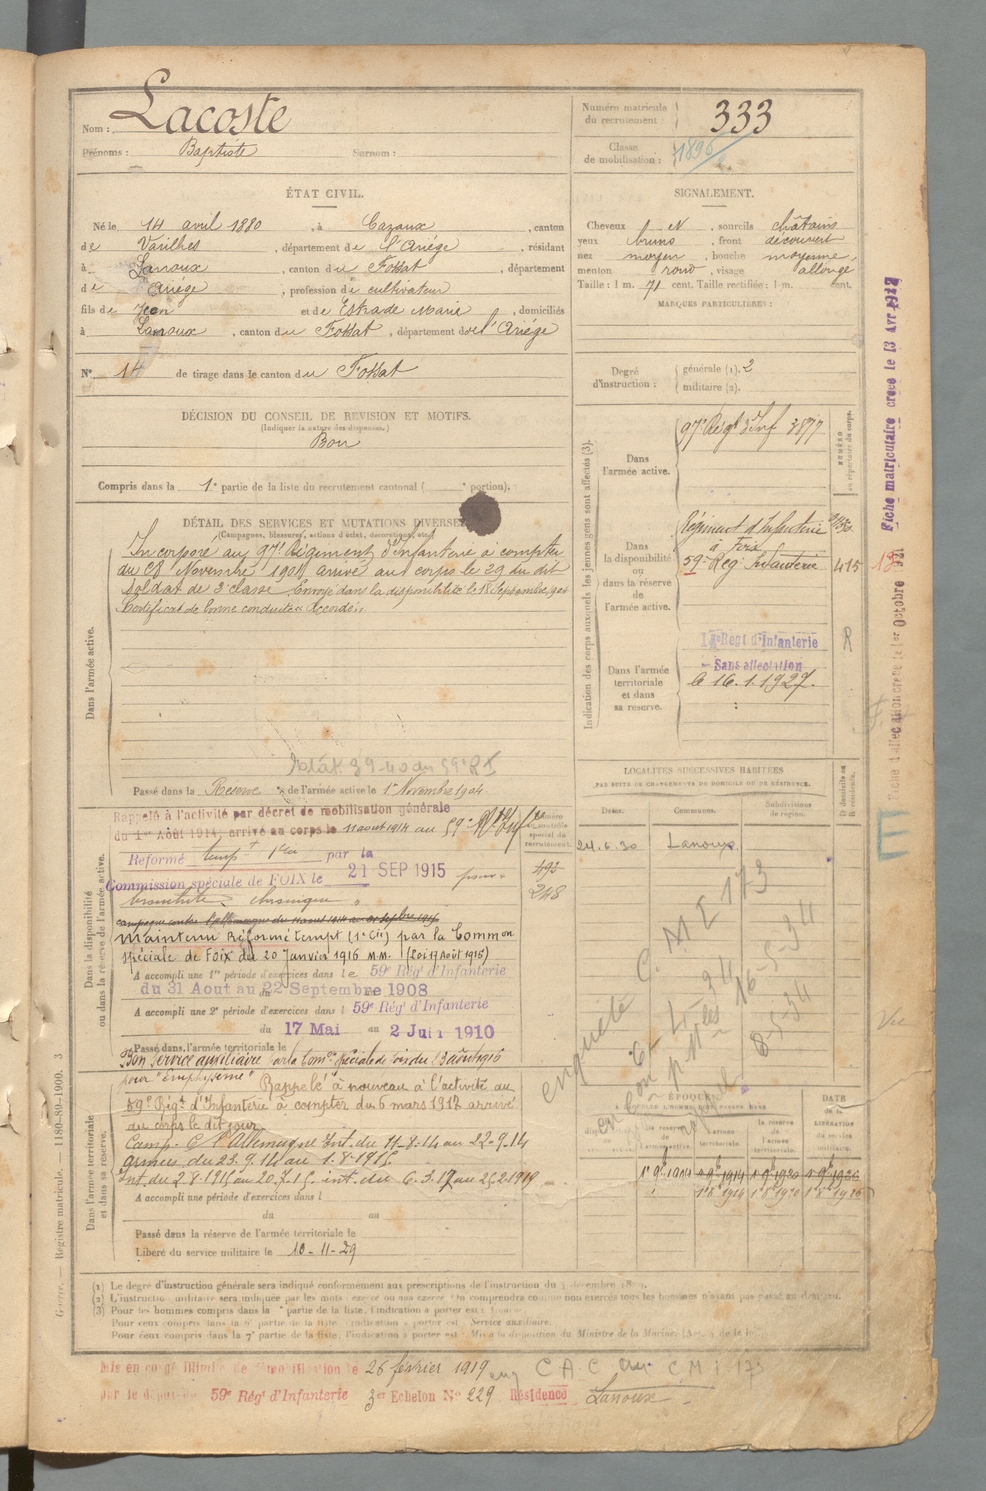 Nom : Lacoste
Prénoms : Baptiste Surnom :
Numéro matricule du recrutement : 333
Classe de mobilisation : 1896
ÉTAT CIVIL.
Né le 14 avril 1880, à Cazaux, canton
de Varilhes, département de l'Ariège, résidant
à Lanoux, canton du Fossat, département
de Ariège, profession de cultivateur
fils de Jean et de Estrade Marie, domiciliés
à Lanoux, canton du Fossat, département de l'Ariège
N° 14 de tirage dans le canton du Fossat
SIGNALEMENT.
Cheveux et, sourcils châtains
yeux bruns, front découvert
nez moyen, bouche moyenne,
menton rond, visage allongé
Taille : 1 m. 71 cent. Taille rectifiée : 1 m. cent.
MARQUES PARTICULIÈRES :
Degré d'instruction : générale (1). 2
militaire (2).
DÉCISION DU CONSEIL DE REVISION ET MOTIFS.
(Indiquer la nature des dispenses.)
Bon
Compris dans la 1e partie de la liste du recrutement cantonal ( e portion).
DÉTAIL DES SERVICES ET MUTATIONS DIVERSES
(Campagnes, blessures, actions d'éclat, décorations, etc.)
Dans l'armée active.
Incorporé au 97e Régiment d'Infanterie à compter
du 28 Novembre 1901 arrivé au corps le 29 du dit
Soldat de 2e classe Envoyé dans la disponibilité le 18 Septembre 1904
Certificat de bonne conduite "Accordé"
59e RI
Passé dans la Réserve de l'armée active le 1er Novembre 1904
Dans la disponibilité ou dans la réserve de l'armée active.
Rappelé à l'activité par décret de mobilisation générale
du 1er Août 1914, arrivé au corps le 11 aout 1914 au 59e Rt d'Inf
Réformé tempt 1re par la
Commission spéciale de FOIX le 21 SEP 1915 pour
bronchite chronique
Campagne contre l'allemagne du 11 aout 1914 au septembre 1915
Maintenu Réformé tempt (1e Cie) par la Common
spéciale de FOIX du 20 Janvier 1916 M.M. (Loi 17 Août 1915)
A accompli une 1re période d'exercices dans le 59e Rég' d'Infanterie
du 31 Aout au 22 Septembre 1908
A accompli une 2e période d'exercices dans l 59e Rég' d'Infanterie
du 17 Mai au 2 Juin 1910
Passé dans l'armée territoriale le
Bon service auxiliaire
pour "Emphysème" Rappelé à nouveau à l'activité au
59e Régt d'Infanterie à compter du 6 mars 1917 arrivé
au corps le dit jour
Dans l'armée territoriale et dans sa réserve.
Camp. C/ l'Allemagne Int. du 11-8-14 au 22-9-14
armées du 23.9.14 au 1.8.1915
Int du 2.8.1915 au 20.9.15. int. du 6.3.17 au 25.2.1919
A accompli une période d'exercices dans l
du au
Passé dans la réserve de l'armée territoriale le
Libéré du service militaire le 10-11-29
Numéro au contrôle spécial du recrutement.
492
248
Indication des corps auxquels les jeunes gens sont affectés (3).
NUMÉRO au répertoire du corps.
Dans l'armée active.
97e Régt d'Inf 3877
Dans la disponibilité ou dans la réserve de l'armée active.
Régiment d'Infanterie
à Foix
59e Rég' Infanterie 415
Dans l'armée territoriale et dans sa reserve.
Regt d'Infanterie R
Sans affectation
le 16.1.1927.
LOCALITÉS SUCCESSIVES HABITÉES
PAR SUITE DE CHANGEMENTS DE DOMICILE OU DE RÉSIDENCE.
Dates. Communes. Subdivisions de région. Domicile ou Résidence.
24.6.30 Lanoux
enquête C.M I 173
16-5-34
8-5-34
ÉPOQUE
DATE de la LIBÉRATION du service militaire.
1 9bre 1904 1 9bre 1914 1 9bre 1920 1 9bre 1926
Fiche matriculaire créée le 13 Avr 1912
Fiche d'affectation créée le 1er Octobre
(1) Le degré d'instruction générale sera indiqué conformément aux prescriptions de l'instruction du décembre
(2) L'instruction militaire sera indiquée par les mots : exercé ou non exercé On comprendra comme non exercés tous les hommes n'ayant pas passé au drapeau.
(3) Pour les hommes compris dans la e partie de la liste, l'indication à porter est :
Pour ceux compris dans la 6e partie de la liste, l'indication à porter est : Service auxiliaire.
Pour ceux compris dans la 7e partie de la liste, l'indication à porter est : Mis à la disposition du Ministre de la Marine
Mis en congé illimité de démobilisation le 26 février 1919
par le dépôt du 59e Rég' d'Infanterie 3er Echelon N° 229 Résidence Lanoux
C A C C M I 173
Guerre. — Registre matricule. — 1180-80-1900. 3